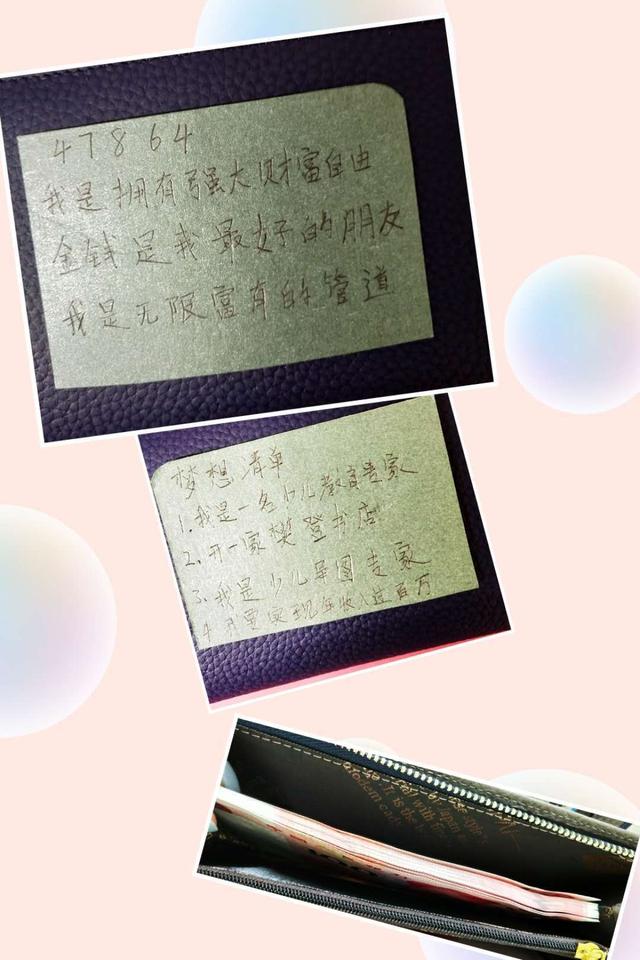 47864
我是拥有强大财富自由
金钱是我最好的朋友
我是无限富有的管道
梦想清单
1.我是一名少儿教育专家
2.开一家樊登书店
3.我是少儿导图专家
4.我要实现年收入过百万
It is the